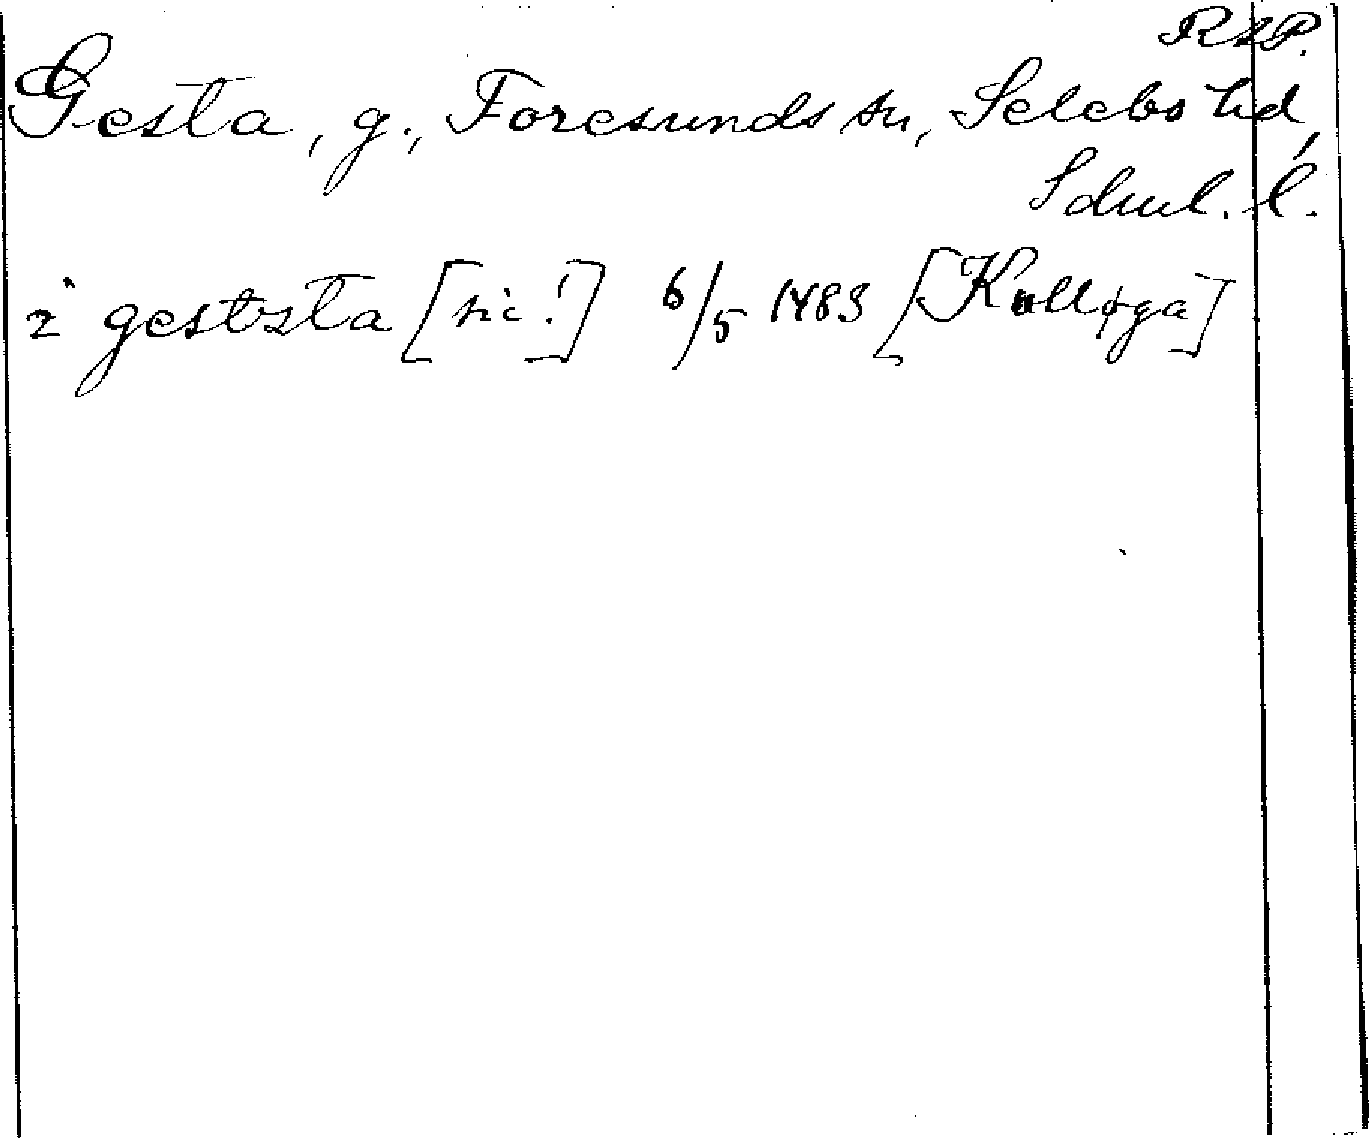 RAP.
Gesta, g., Foresunds sn, Selebo hd,
Sdml. l.
i gestzsta [sic!] 6/5 1483 [Kulløga]